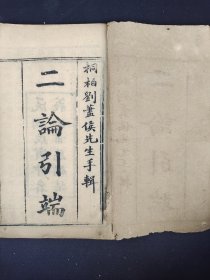 桐柏劉藎侯先生手輯
二論引端